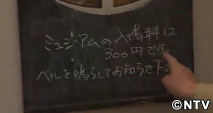 ミュジアムの入場料は
300円です。
ベルを鳴らしてお知らせ下
©NTV